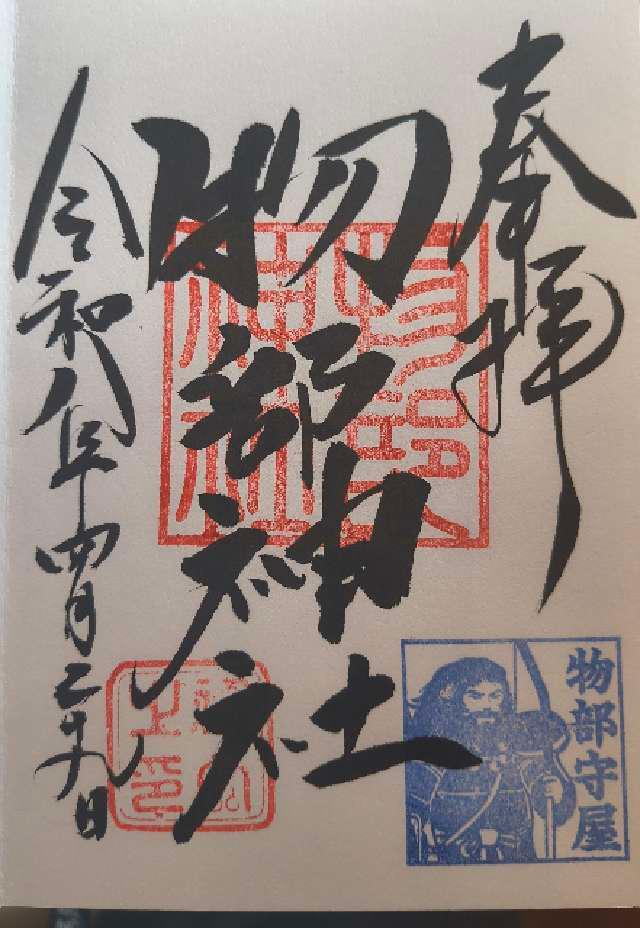 奉拝
物部神社
令和八年四月二十九日
物部守屋